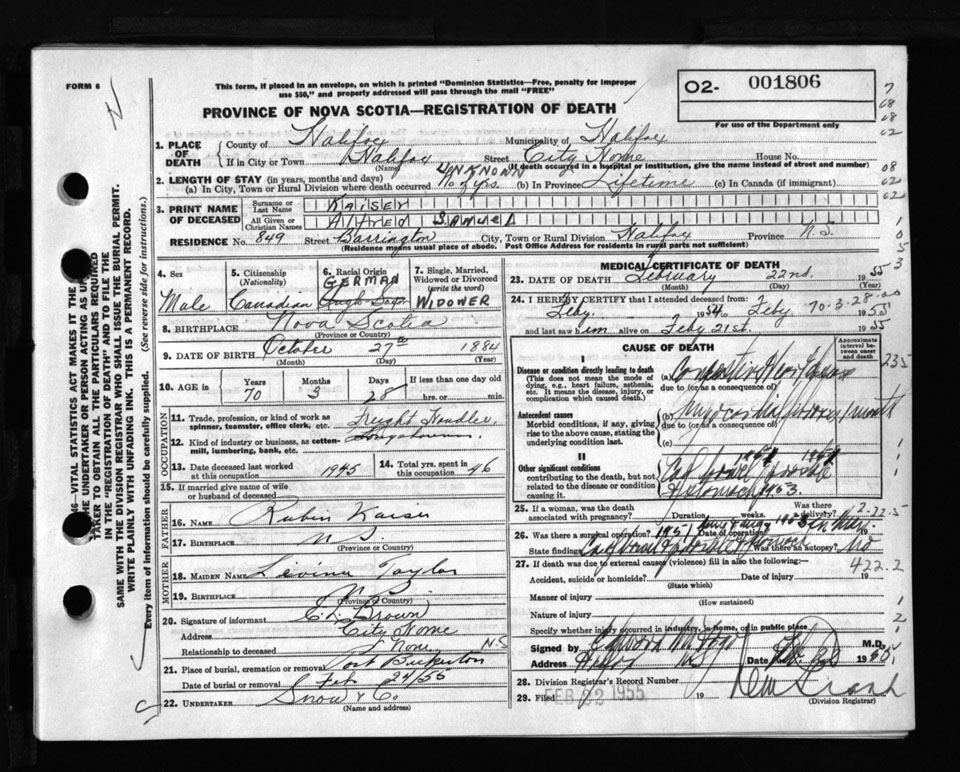 FORM 6
This form, if placed in an envelope, on which is printed "Dominion Statistics—Free, penalty for improper
use $50," and properly addressed will pass through the mail "FREE"
O2- 001806
For use of the Department only
PROVINCE OF NOVA SCOTIA—REGISTRATION OF DEATH
1. PLACE OF DEATH
County of Halifax Municipality of Halifax
If in City or Town Halifax Street City Home House No.
(Name) (If death occurred in a hospital or institution, give the name instead of street and number)
2. LENGTH OF STAY (in years, months and days) UNKNOWN
(a) In City, Town or Rural Division where death occurred No. of yrs. (b) In Province Lifetime (c) In Canada (if immigrant)
3. PRINT NAME OF DECEASED
Surname or Last Name KAISER
All Given or Christian Names Alfred Samuel
RESIDENCE No. 849 Street Barrington City, Town or Rural Division Halifax Province N.S.
(Residence means usual place of abode. Post Office Address for residents in rural parts not sufficient)
4. Sex Male
5. Citizenship (Nationality) Canadian
6. Racial Origin GERMAN
7. Single, Married, Widowed or Divorced (write the word) WIDOWER
8. BIRTHPLACE Nova Scotia
(Province or Country)
9. DATE OF BIRTH October 27th 1884
(Month) (Day) (Year)
10. AGE in Years 70 Months 3 Days 28 If less than one day old hrs. or min.
OCCUPATION
11. Trade, profession, or kind of work as spinner, teamster, office clerk, etc. Freight Handler
12. Kind of industry or business, as cotton-mill, lumbering, bank, etc. Longshoreman.
13. Date deceased last worked at this occupation 1945
14. Total yrs. spent in this occupation 46
15. If married give name of wife or husband of deceased
FATHER
16. NAME Rubin Kaiser
17. BIRTHPLACE N S.
(Province or Country)
MOTHER
18. MAIDEN NAME Levina Taylor
19. BIRTHPLACE
(Province or Country)
20. Signature of informant Brown
Address City Home
Relationship to deceased None N.S
21. Place of burial, cremation or removal Port Bickerton
Date of burial or removal Feb 24/55
22. UNDERTAKER Snow & Co
(Name and address)
MEDICAL CERTIFICATE OF DEATH
23. DATE OF DEATH February 22nd 1955
(Month) (Day)
24. I HEREBY CERTIFY that I attended deceased from:
Feby. 1954 to Feby 1955
70-3-28-00
and last saw him alive on Feby 21st. 1955
CAUSE OF DEATH
Approximate interval between onset and death
I
Disease or condition directly leading to death
(This does not mean the mode of dying, e.g., heart failure, asthenia, etc. It means the disease, injury, or complication which caused death.)
(a)
due to (or as a consequence of)
Antecedent causes
Morbid conditions, if any, giving rise to the above cause, stating the underlying condition last.
(b)
due to (or as a consequence of)
(c)
II
Other significant conditions
contributing to the death, but not related to the disease or condition causing it.
235
25. If a woman, was the death associated with pregnancy? Duration weeks. Was there a delivery?
2-22-5
26. Was there a surgical operation? 1951 Date of operation
State findings Was there an autopsy? No
27. If death was due to external causes (violence) fill in also the following:
422.2
Accident, suicide or homicide? Date of injury 19
(State which)
Manner of injury
(How sustained)
Nature of injury
Specify whether injury occurred in industry, in home, or in public place
Signed by M.D.
Address Halifax NS Date Feb 22 1955
28. Division Registrar's Record Number
29. Filed FEB 22 1955 19
(Division Registrar)
VITAL STATISTICS ACT MAKES IT THE
THE UNDERTAKER OR PERSON ACTING AS UNDERTAKER
TO OBTAIN ALL THE PARTICULARS REQUIRED
IN THE "REGISTRATION OF DEATH" AND TO FILE THE
SAME WITH THE DIVISION REGISTRAR WHO SHALL ISSUE THE BURIAL PERMIT.
WRITE PLAINLY WITH UNFADING INK. THIS IS A PERMANENT RECORD.
Every item of information should be carefully supplied. (See reverse side for instructions.)